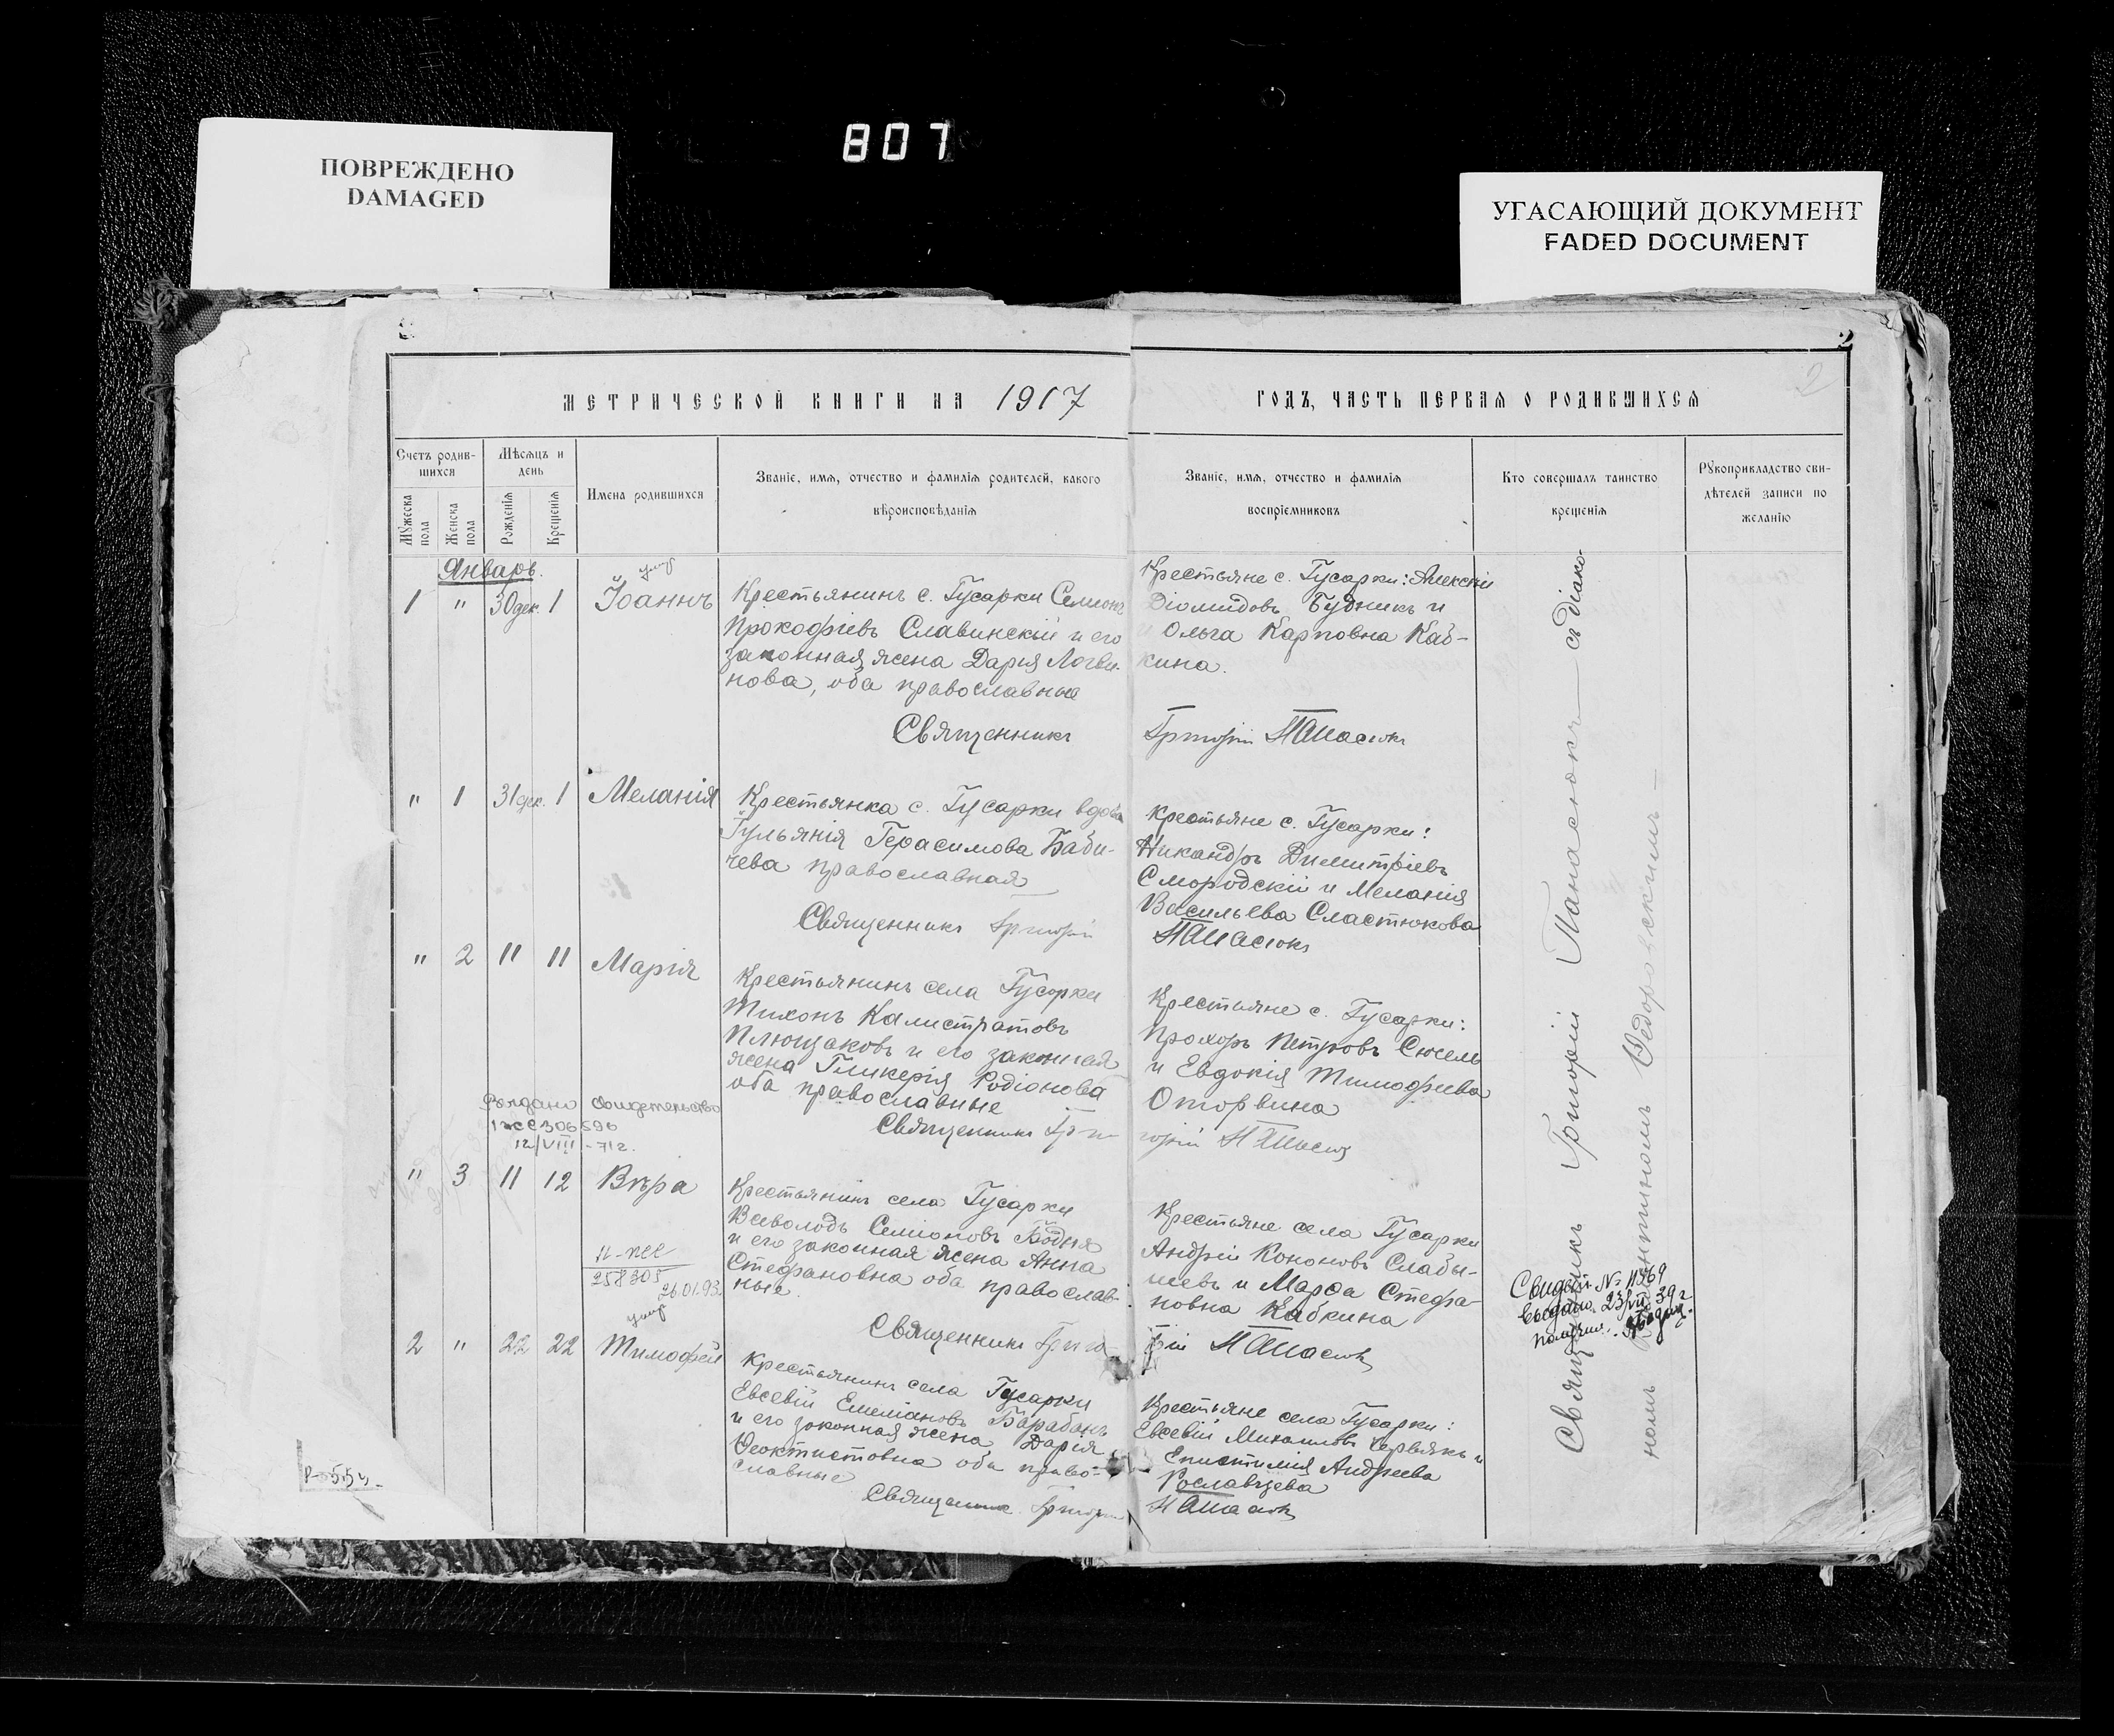 807
ПОВРЕЖДЕНО
DAMAGED
УГАСАЮЩИЙ ДОКУМЕНТ
FADED DOCUMENT
2
2
МЕТРИЧЕСКОЙ КНИГИ НА 1917
ГОДЪ, ЧАСТЬ ПЕРВАЯ О РОДИВШИХСЯ
Счетъ родив-
шихся
Мужеска
пола
Женска
пола
Мѣсяцъ и
день
Рожденія
Крещенія
Имена родившихся
Званіе, имя, отчество и фамилія родителей, какого
вѣроисповѣданія
Званіе, имя, отчество и фамилія
воспріемниковъ
Кто совершалъ таинство
крещенія
Рукоприкладство сви-
дѣтелей записи по
желанію
Январь.
умер
1 " 30 дек. 1 Іоаннъ
Крестьянинъ с. Гусарки Семіонъ
Прокофіевъ Славинскій и его
законная жена Дарія Логви-
нова, оба православные
Священникъ
Крестьяне с. Гусарки: Алексій
Діомидовъ Будникъ и
и Ольга Карповна Каб-
кина.
Григорій Панасюкъ
" 1 31 дек. 1 Меланія
Крестьянка с. Гусарки вдова
Іульянія Герасимова Баби-
чева православная
Священникъ Григорій
Крестьяне с. Гусарки:
Никандръ Димитріевъ
Смородскій и Меланія
Васильева Сластюкова
Панасюкъ
" 2 11 11 Марія
Крестьянинъ села Гусарки
Тихонъ Калистратовъ
Плющаковъ и его законная
жена Гликерія Родіонова
оба православные
Священникъ Гри-
Крестьяне с. Гусарки:
Прохоръ Петровъ Сюсель
и Евдокія Тимофеева
Оторвина
горій Панасюкъ
Выдано свидетельство
306596
12/VIII-71г.
" 3 11 12 Вѣра
Крестьянинъ села Гусарки
Всеволодъ Семіоновъ Бодня
и его законная жена Анна
Стефановна оба православ-
ные.
Священникъ Григо-
Крестьяне села Гусарки
Андрей Кононовъ Слабы-
шевъ и Марфа Стефа-
новна Кабкина
рій Панасюкъ
258305
26.01.93.
умер
2 " 22 22 Тимофей
Крестьянинъ села Гусарки
Евсевій Емеліановъ Барабанъ
и его законная жена Дарія
Феоктистовна оба право-
славные
Священникъ Григорій
Крестьяне села Гусарки:
Евсевій Михаиловъ Червякъ и
Епистимія Андреева
Рославцева
Панасюкъ
Священникъ Григорій Панасюкъ — съ діако-
номъ Федоровскимъ —
Свидет. № 11369
Выдано 23/VII 39 г
Р-554